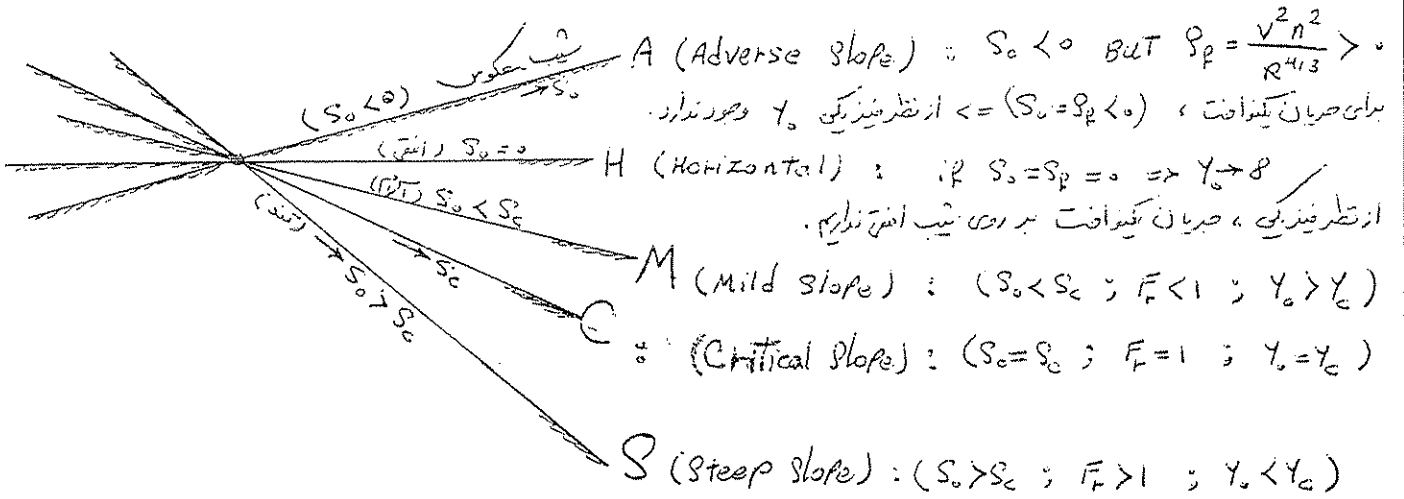 A (Adverse Slope) : S₀ < 0 BUT S_f = V²n² / R^4/3 > 0
شیب معکوس
(S₀ < 0) → S₀
برای جریان یکنواخت ، (S₀ = S_f < 0) => از نظر فیزیکی Y₀ وجود ندارد.
(افقی) S₀ = 0
H (Horizontal) : if S₀ = S_f = 0 => Y₀ → 8
از نظر فیزیکی ، جریان یکنواخت بر روی شیب افقی نداریم.
(آرام) S₀ < S_c
M (Mild Slope) : (S₀ < S_c ; F_r < 1 ; Y₀ > Y_c)
→ S_c
C : (Critical Slope) : (S₀ = S_c ; F_r = 1 ; Y₀ = Y_c)
(تند) → S₀ > S_c
S (Steep Slope) : (S₀ > S_c ; F_r > 1 ; Y₀ < Y_c)